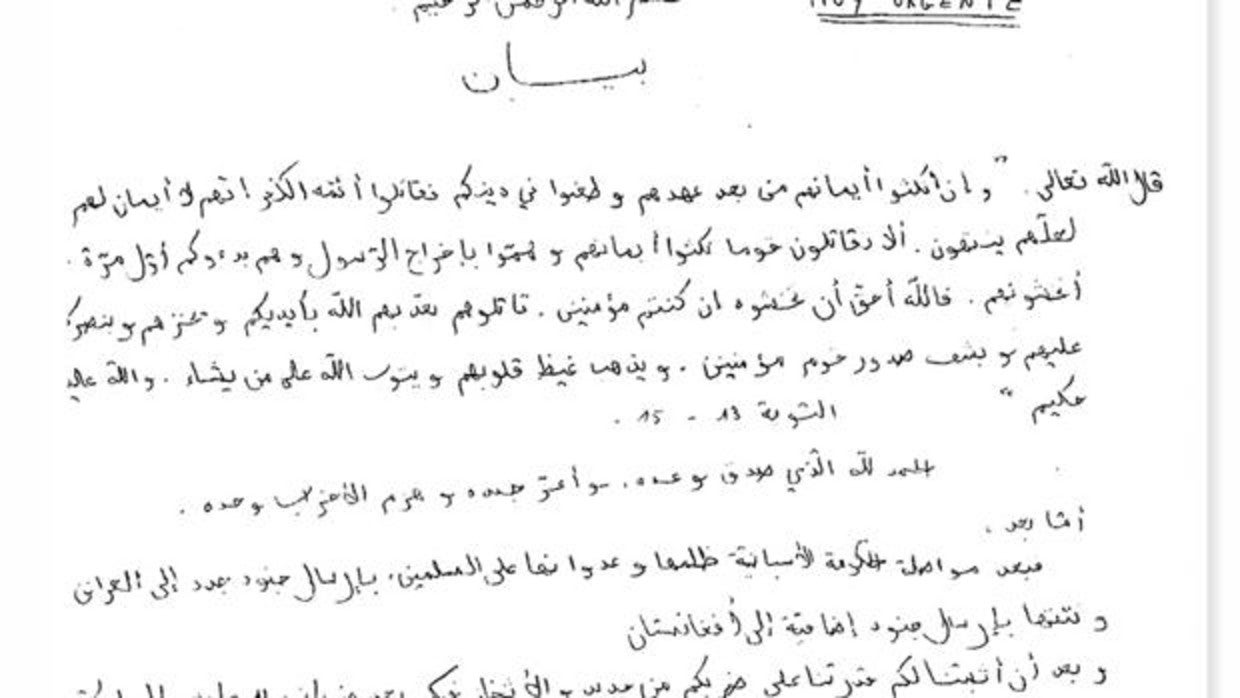 MUY URGENTE
بسم الله الرحمن الرحيم .
بيان
قال الله تعالى . " و إن نكثوا أيمانهم من بعد عهدهم و طعنوا في دينكم فقاتلوا أئمه الكفر إنهم لا أيمان لهم
لعلّهم ينتهون . ألا تقاتلون قوما نكثوا أيمانهم و همّوا بإخراج الرّسول و هم بدءوكم أوّل مرّة .
أتخشونهم . فاللّه أحقّ أن تخشوه ان كنتم مؤمنين . قاتلوهم يعذّبهم اللّه بأيديكم و يخزهم و ينصركم
عليهم و يشف صدور قوم مؤمنين . و يذهب غيظ قلوبهم و يتوب اللّه على من يشاء . و اللّه عليم
حكيم " التوبة 13 - 15 .
الحمد للّه الّذي صدق وعده . و أعزّ جنده و هزم الأحزاب وحده .
أمّا بعد .
فبعد مواصلة الحكومة الأسبانية ظلمها و عدوانها على المسلمين . بإرسال جنود جدد إلى العراق
و نيتها بإرسال جنود إضافية إلى أفغانستان
و بعد أن أثبتنا لكم قدرتنا على ضربكم من جديد